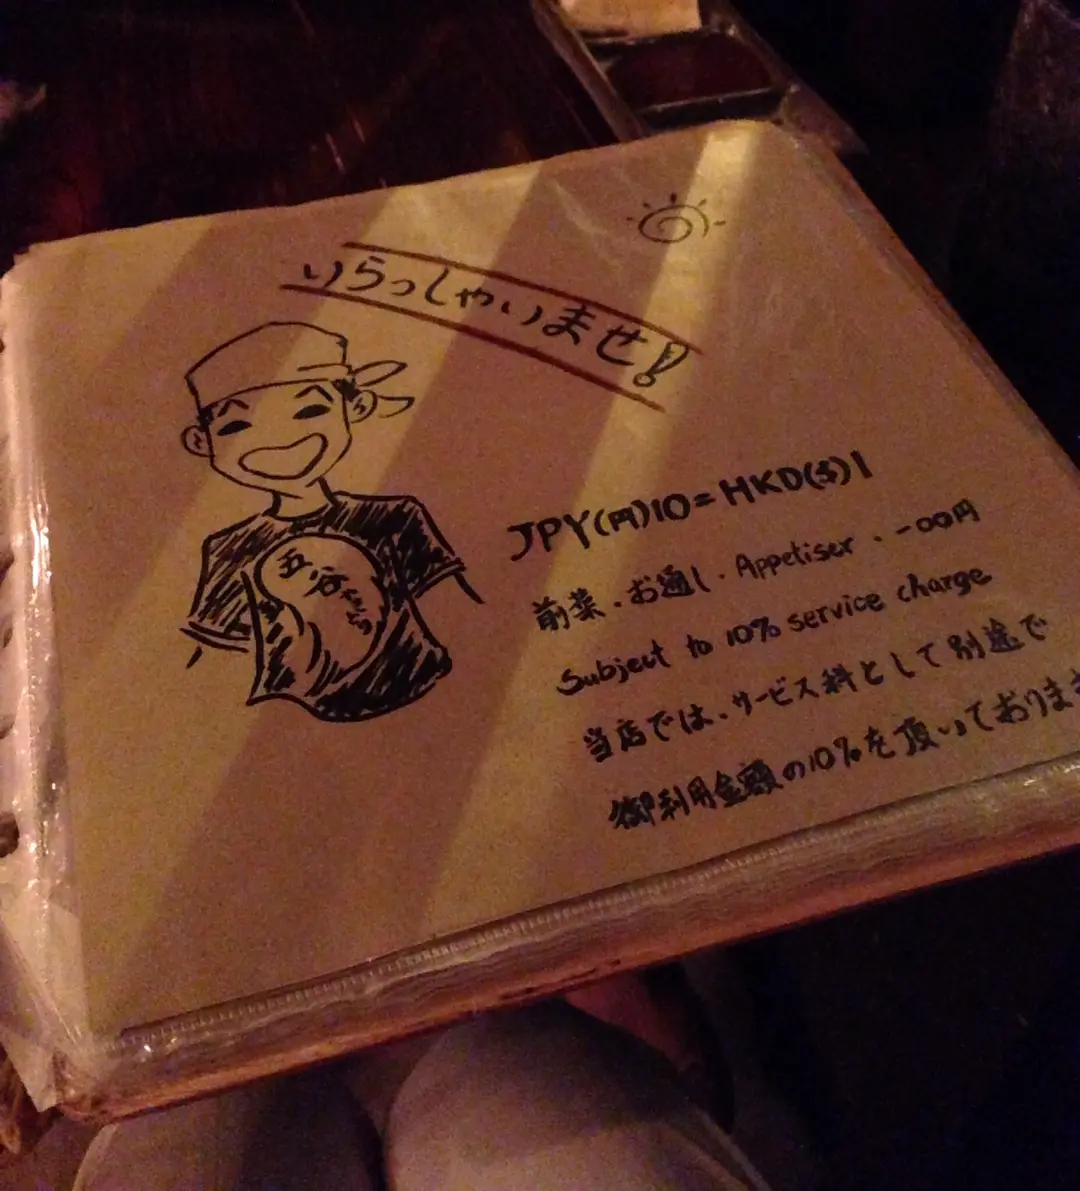 いらっしゃいませ!
五谷
JPY(円)10=HKD($)1
前菜・お通し・Appetiser・一〇〇円
Subject to 10% service charge
当店では、サービス料として別途で
御利用金額の10%を頂いておりま